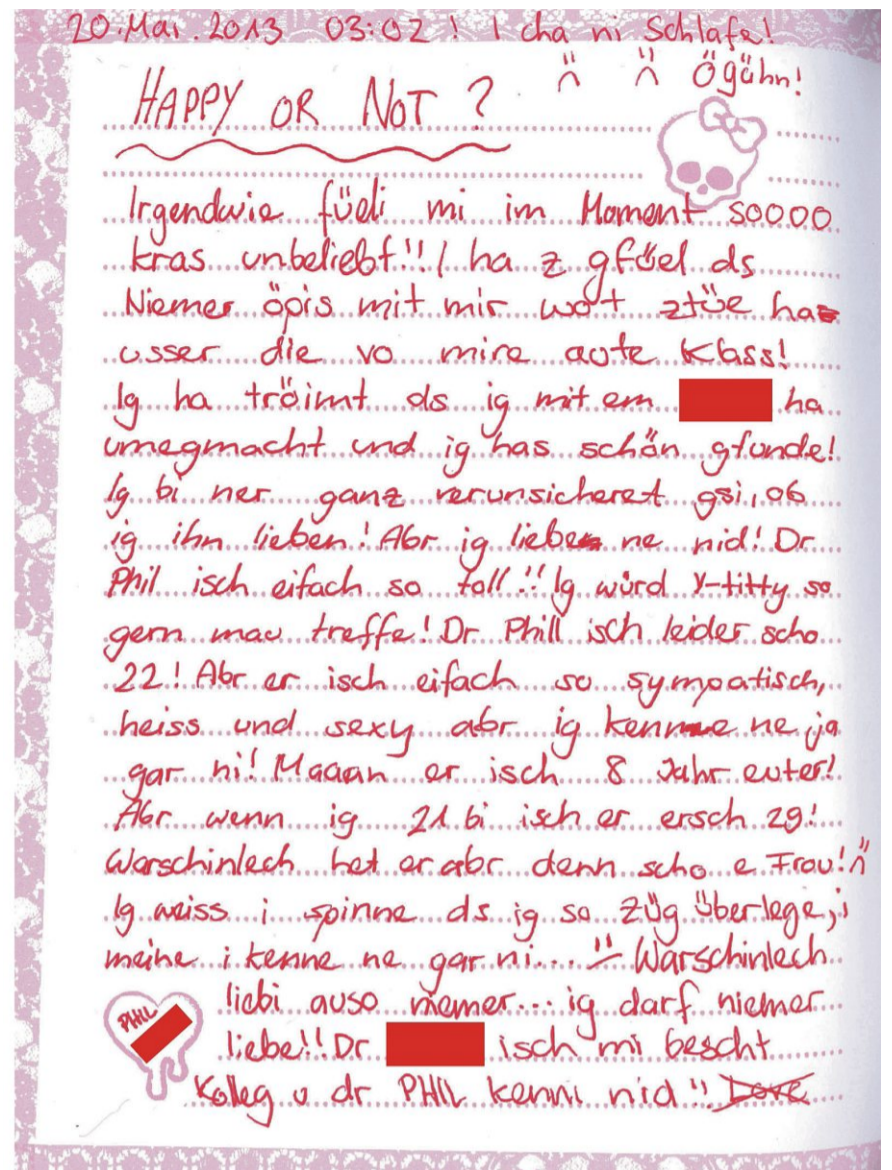 20.Mai.2013 03:02! I cha ni Schlafe!
Ögähn!
HAPPY OR NOT?
Irgendwie füeli mi im Moment soooo
kras unbeliebt!! I ha z gfüel ds
Niemer öpis mit mir wott ztüe ha
usser die vo mire aute Klass!
Ig ha tröimt ds ig mit em ha
umegmacht und ig has schön gfunde!
Ig bi ner ganz verunsicheret gsi, ob
ig ihn lieben! Abr ig liebe ne nid! Dr
Phil isch eifach so toll!! Ig würd Y-titty so
gern mau treffe! Dr Phill isch leider scho
22! Abr er isch eifach so sympatisch,
heiss und sexy abr ig kenne ne ja
gar ni! Maaan er isch 8 Jahr euter!
Abr wenn ig 21 bi isch er ersch 29!
Warschinlech het er abr denn scho e Frou!
Ig weiss i spinne ds ig so züg überlege, i
meine i kenne ne gar ni... Warschinlech
liebi auso niemer... ig darf niemer
PHIL
liebe!! Dr isch mi bescht
Kolleg u dr PHIL kenni nid!! Love